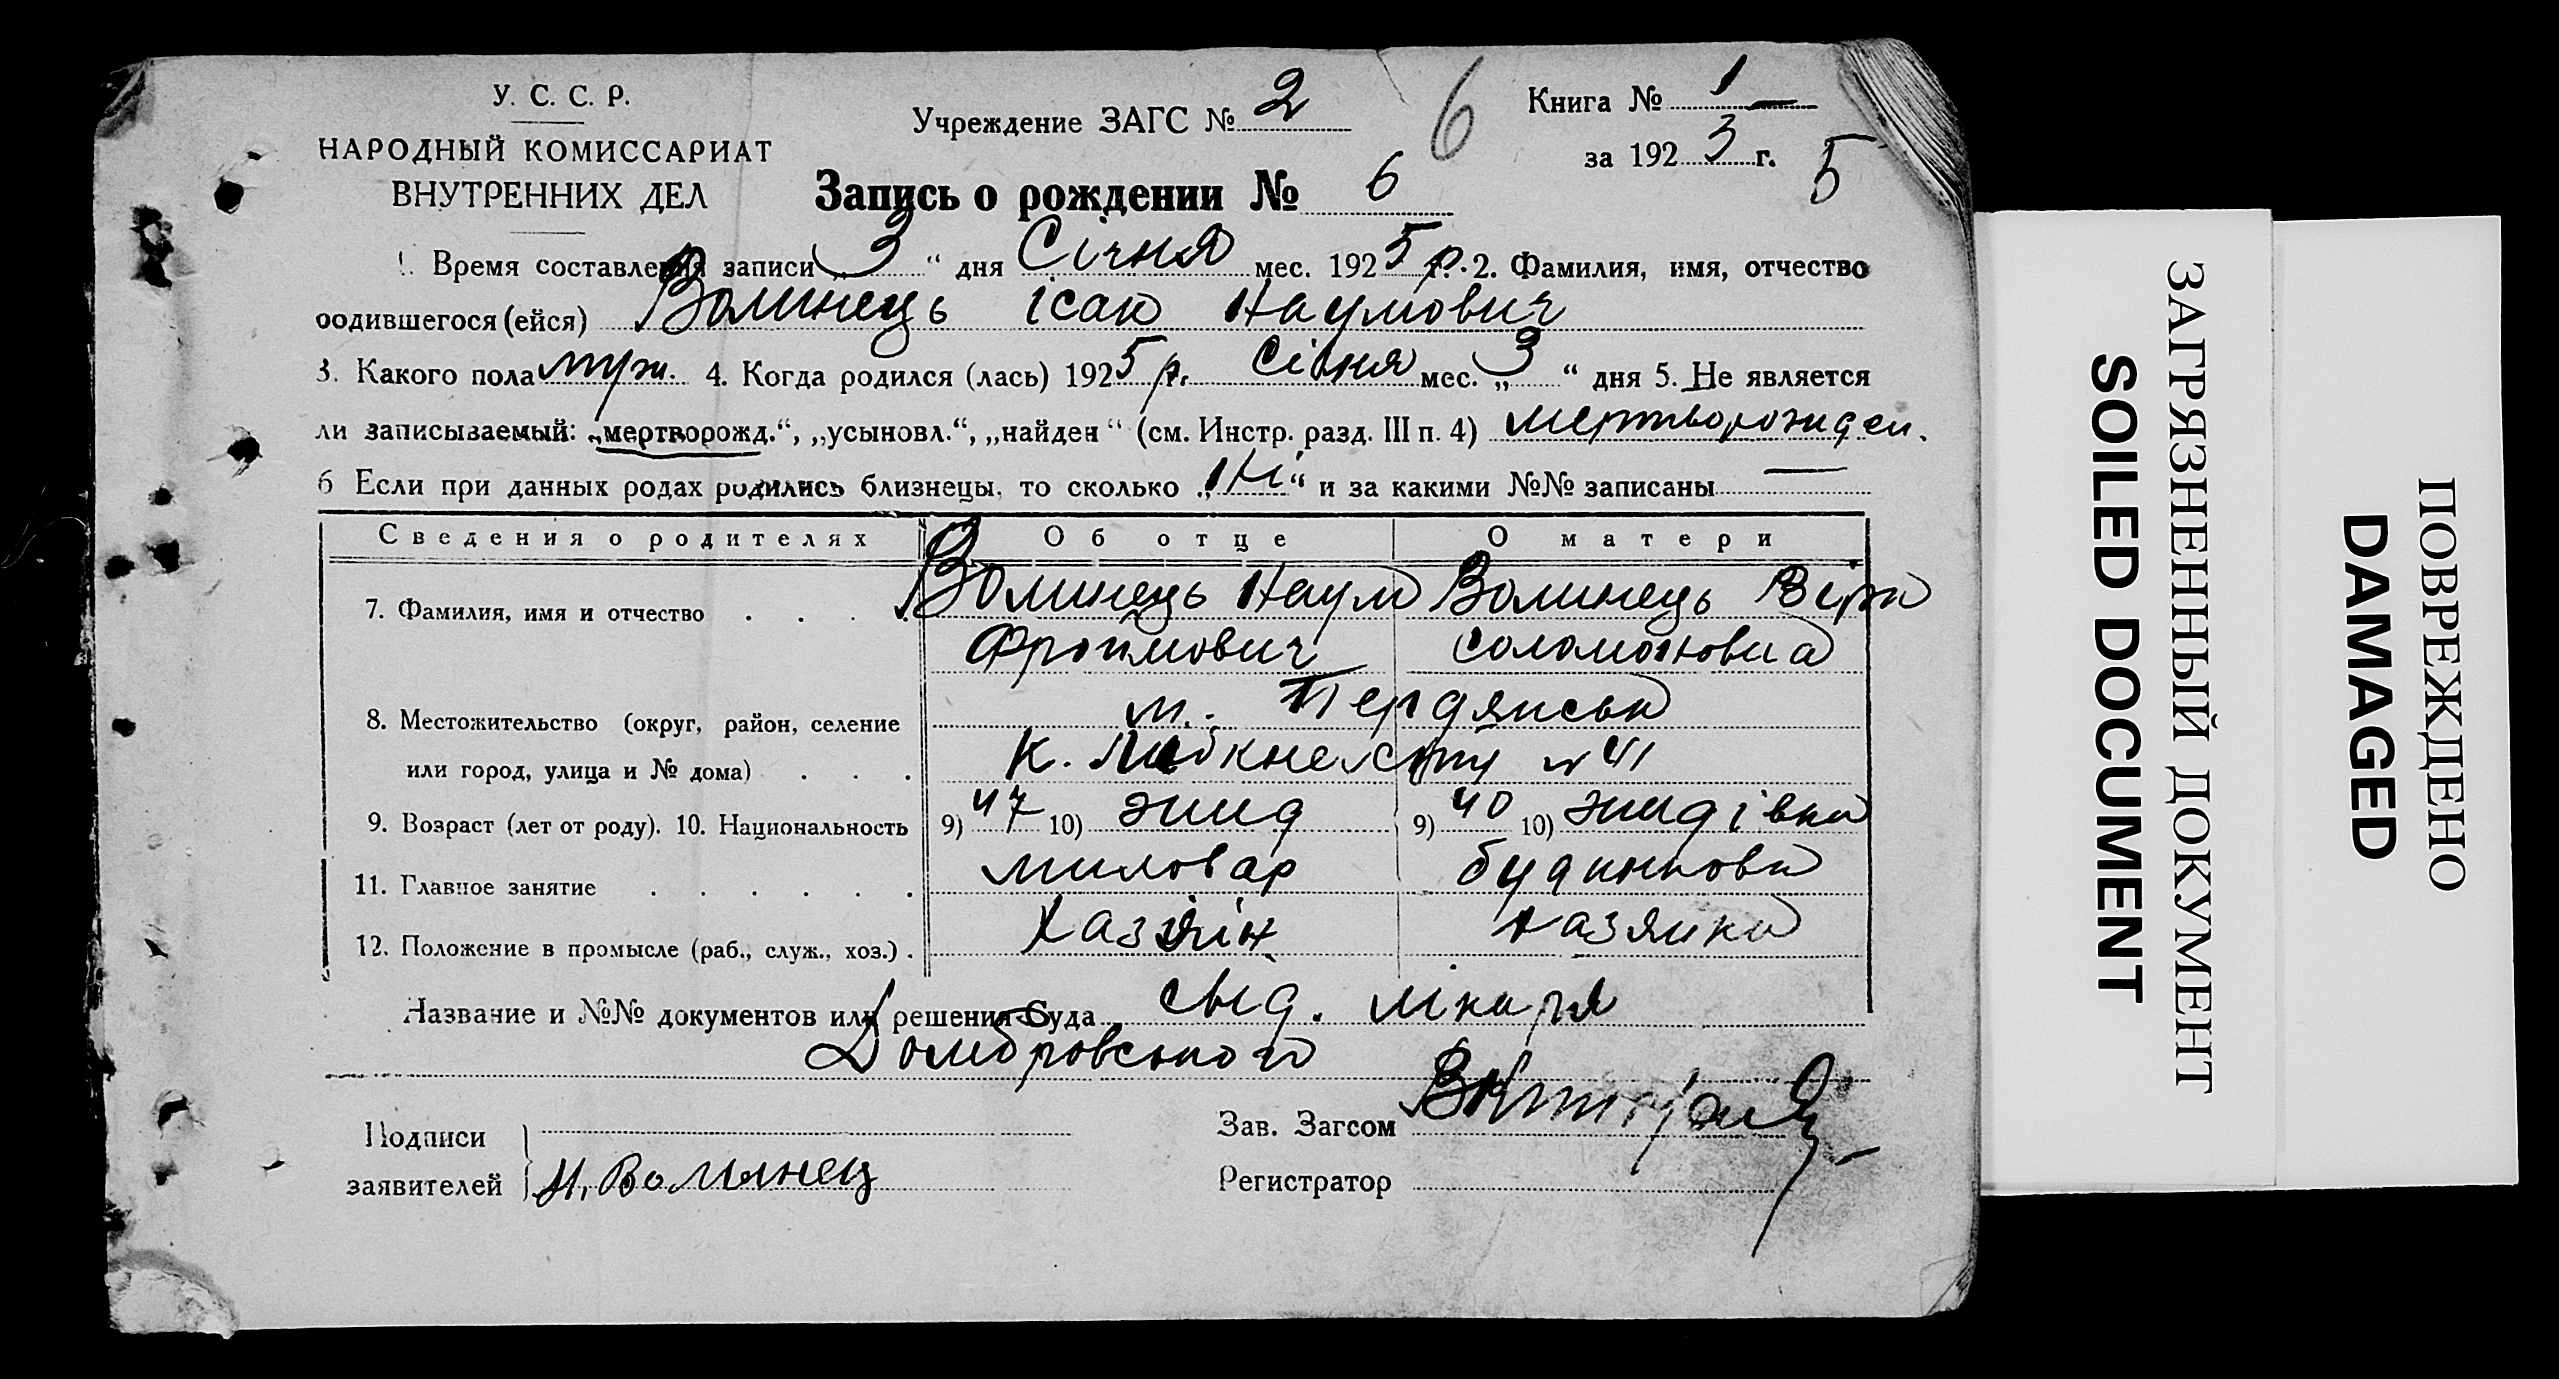 У. С. С. Р.
НАРОДНЫЙ КОМИССАРИАТ
ВНУТРЕННИХ ДЕЛ
Учреждение ЗАГС № 2
6
Книга № 1 —
за 1923 г.
5
Запись о рождении № 6
1. Время составления записи „3“ дня Січня мес. 1925 р. 2. Фамилия, имя, отчество
родившегося (ейся) Волинець Ісак Наумович
3. Какого пола муж. 4. Когда родился (лась) 1925 р. Січня мес. „3“ дня 5. Не является
ли записываемый: „мертворожд.“, „усыновл.“, „найден“ (см. Инстр. разд. III п. 4) мертворожден.
6 Если при данных родах родились близнецы, то сколько „Ні“ и за какими №№ записаны —
Сведения о родителях Об отце О матери
7. Фамилия, имя и отчество Волинець Наум Волинець Віра
Фроімович Соломоновна
8. Местожительство (округ, район, селение м. Бердянськ
или город, улица и № дома) К. Лібкнехта № 41
9. Возраст (лет от роду). 10. Национальность 9) 47 10) жид 9) 40 10) жидівка
11. Главное занятие миловар будинкова
12. Положение в промысле (раб., служ., хоз.) хазяїн хазяйка
Название и №№ документов или решения Суда свід. лікаря
Домбровського
Подписи
заявителей Н. Волинец
Зав. Загсом
Регистратор
ЗАГРЯЗНЕННЫЙ ДОКУМЕНТ
SOILED DOCUMENT
ПОВРЕЖДЕНО
DAMAGED